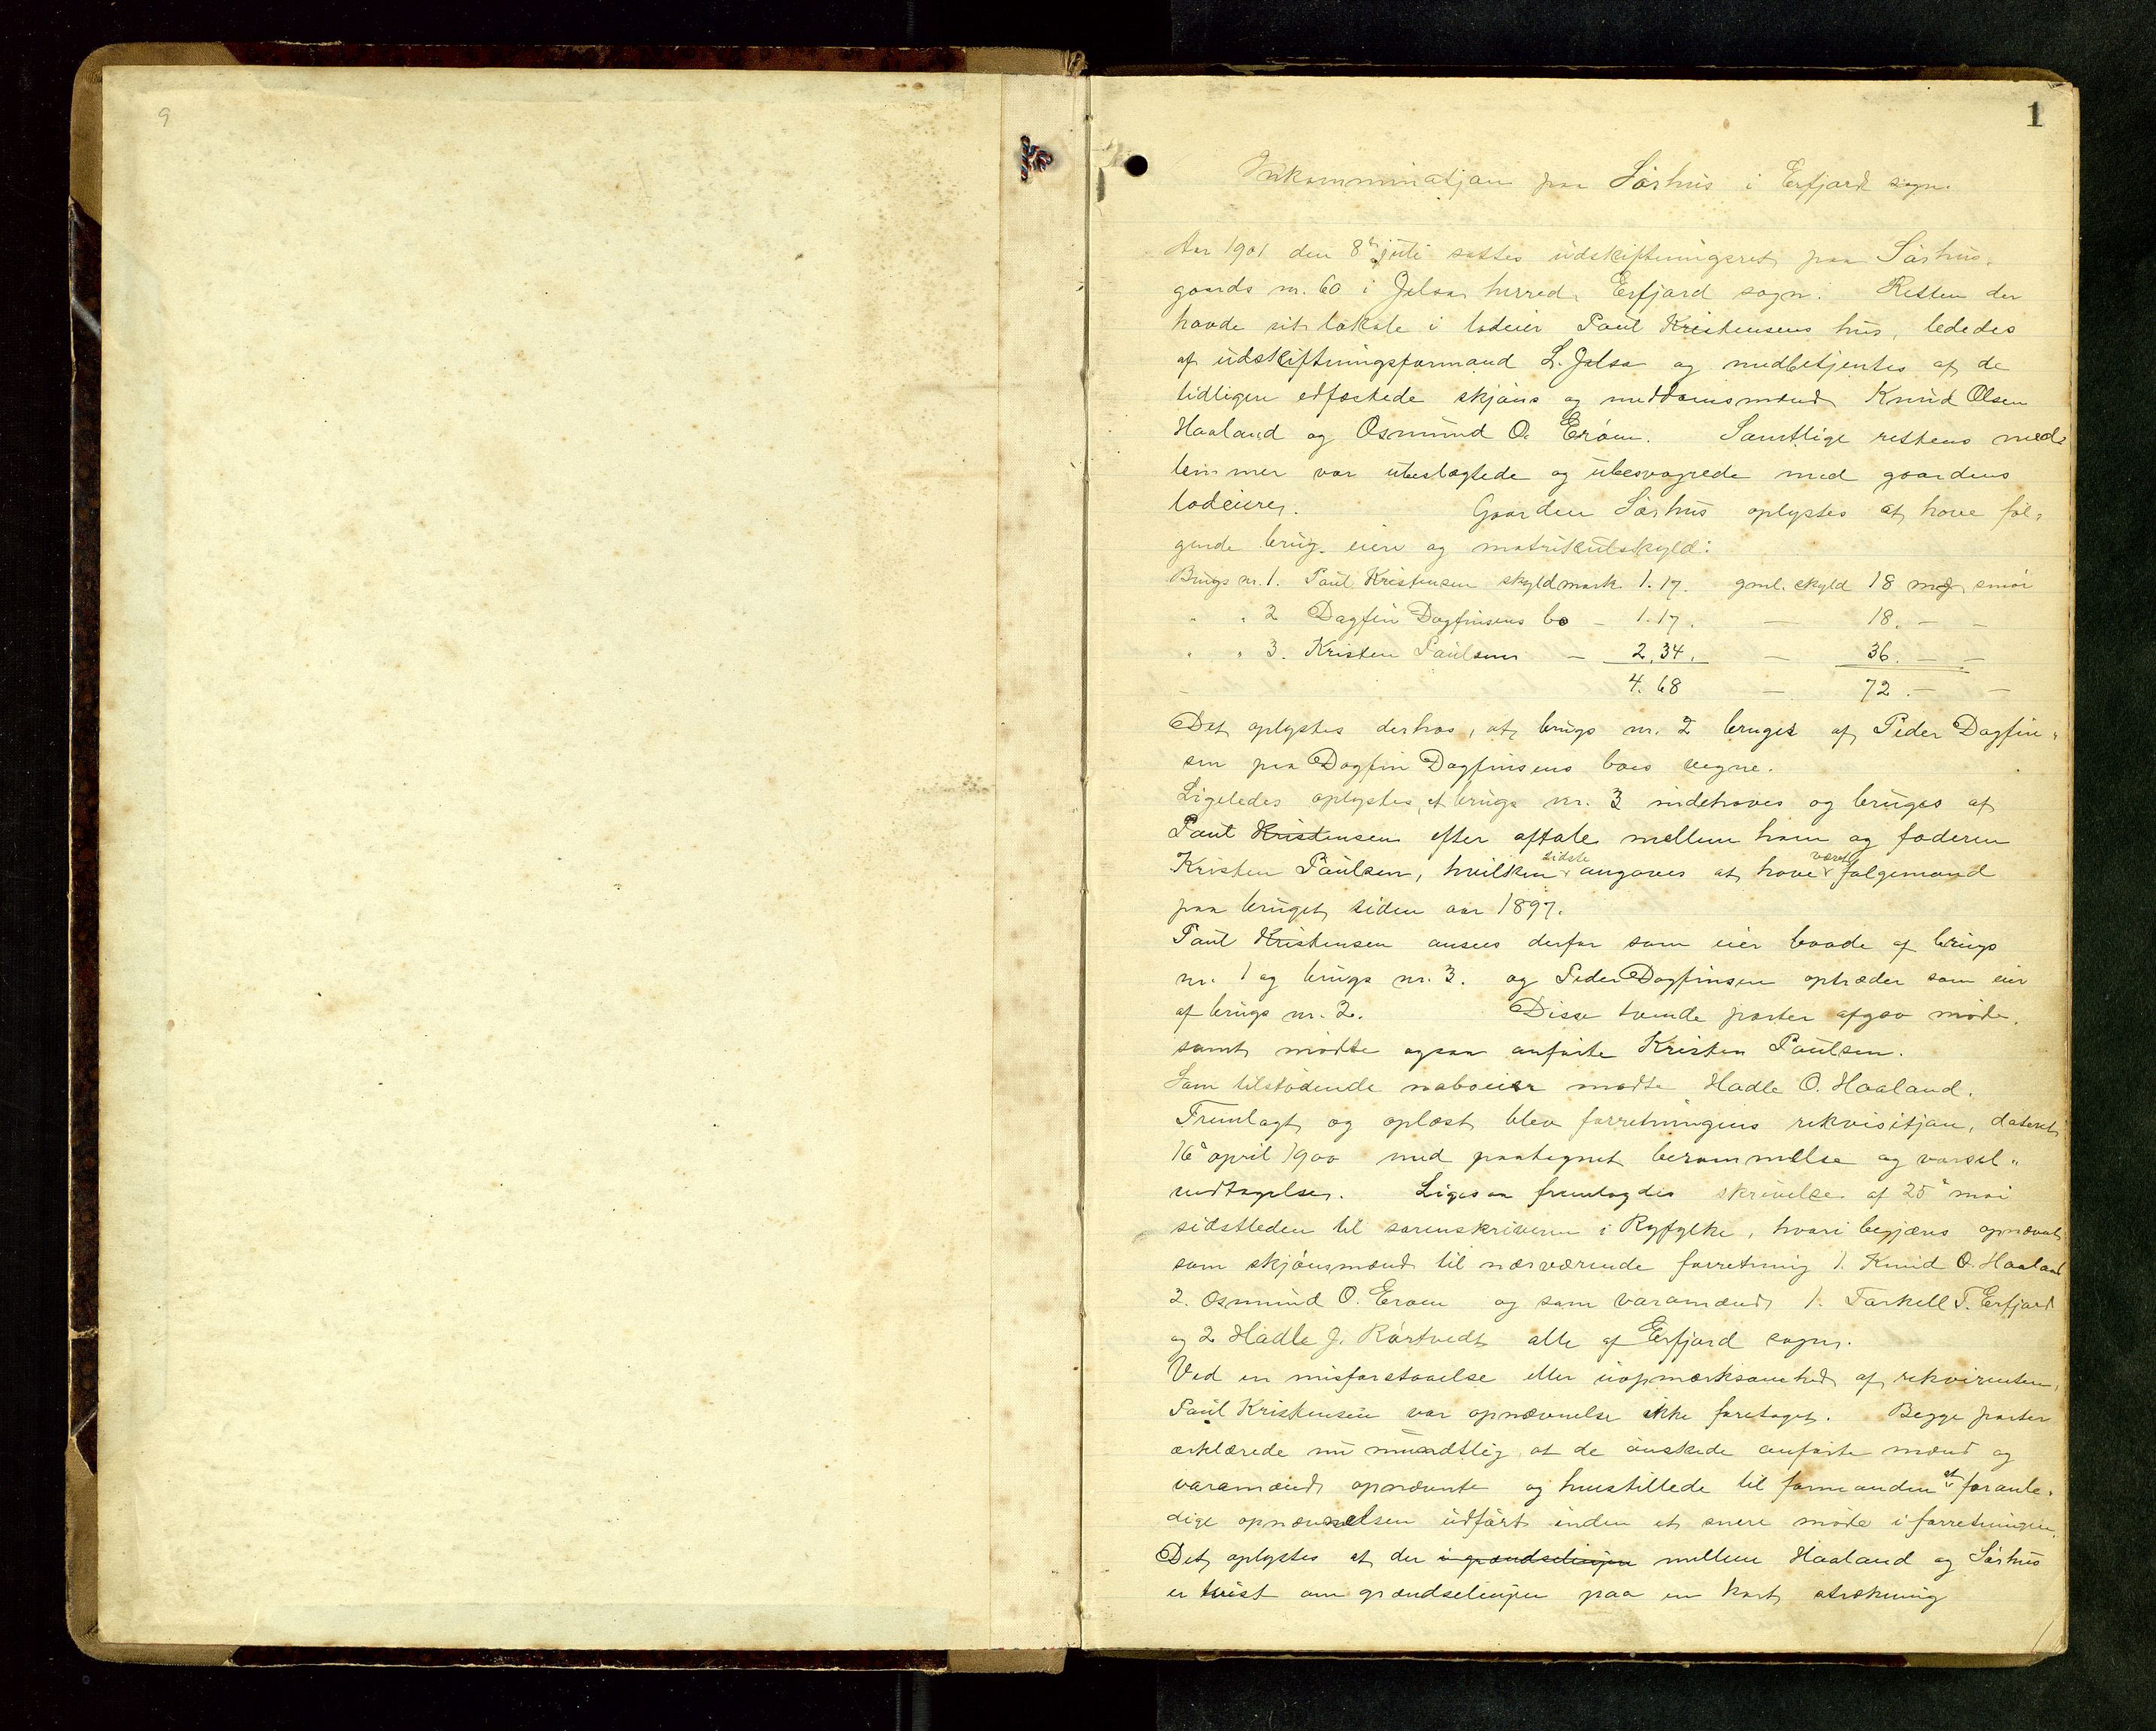 9
1
Inkamminatjan paa Sørhus i Erfjord sogn.
Aar 1901 den 8de juli sattes udskiftningsret paa Sørhus,
gaards nr. 60 i Jelsa herred, Erfjord sogn. Retten der
havde sit lokale i lodeier Paul Kristensens hus, lededes
af udskiftningsformand L. Jelsa og medbetjentes af de
tidligere edfæstede skjøns og meddomsmænd Knud Olsen
Haaland og Osmund O. Erøen. Samtlige rettens med-
lemmer var ubeslægtede og ubesvogrede med gaardens
lodeiere. Gaarden Sørhus oplystes at have føl-
gende brug, eiere og matrikulskyld:
Brugs nr. 1. Paul Kristensen skyldmark 1.17. gml. skyld 18 mrk smør
" " 2 Dagfin Dagfinsens bo — 1.17. — 18. — —
" " 3. Kristen Paulsen — 2.34. — 36. — —
4.68 — 72. — —
Det oplystes derhos, at brugs nr. 2 bruges af Peder Dagfin-
sen paa Dagfin Dagfinsens boes vegne.
Ligeledes oplystes, at brugs nr. 3 indehaves og bruges af
Paul Kristensen efter aftale mellem ham og faderen
Kristen Paulsen, hvilken sidste angaves at have været følgemand
paa bruget siden aar 1897.
Paul Kristensen ansees derfor som eier baade af brugs
nr. 1 og brugs nr. 3. og Peder Dagfinsen optræder som eier
af brugs nr. 2. Disse tvende parter afgav møde,
samt mødte ogsaa anførte Kristen Paulsen.
Som tilstødende naboeier mødte Hadle O. Haaland.
Fremlagt og oplæst blev forretningens rekvisitjon, dateret
16de april 1900 med paategnet berammelse og varsel-
vedtagelse. Ligesaa fremlagdes skrivelse af 25de mai
sidstleden til sorenskriveren i Ryfylke, hvori begjæres opnævnt
som skjønsmænd til nærværende forretning 1. Knud O. Haaland
2. Osmund O. Erøen og som varamænd 1. Tarkell T. Erfjord
og 2 Hadle J. Rørtvedt alle af Erfjord sogn.
Ved en misforstaaelse eller uopmærksomhed af rekvirenten,
Paul Kristensen var opnævnelse ikke foretaget. Begge parter
erklærede nu mundtlig at de ønskede anførte mænd og
varamænd opnævnte og henstillede til formanden at foranle-
dige opnævnelsen udført inden et senere møde i forretningen.
Det oplystes at der i grændselinjen mellem Haaland og Sørhus
er tvist om grændselinjen paa en kort strækning